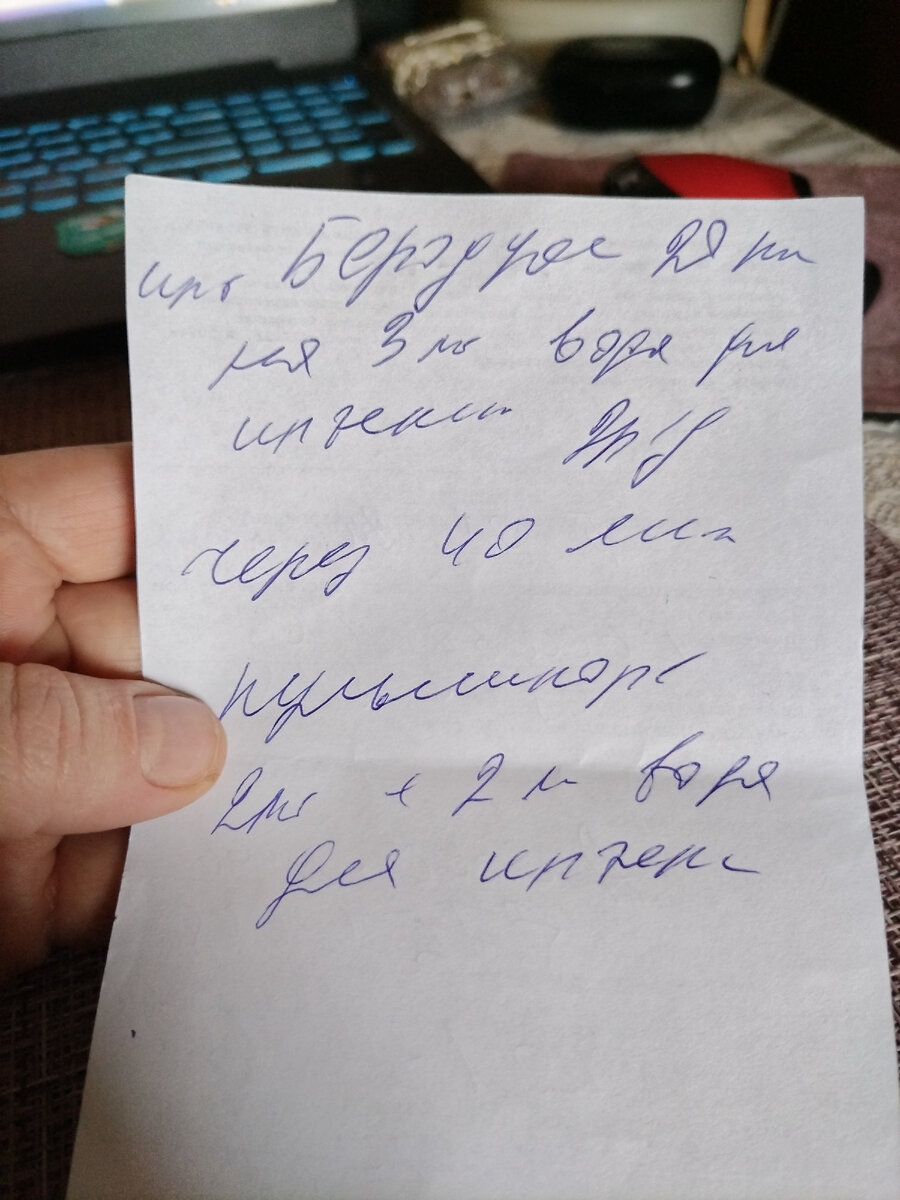 инг Беродуал 28 кап
на 3 мл вода для
инъекци 2р/д
через 40 мин
пульмикорт
2мл + 2 мл вода
для инъекц